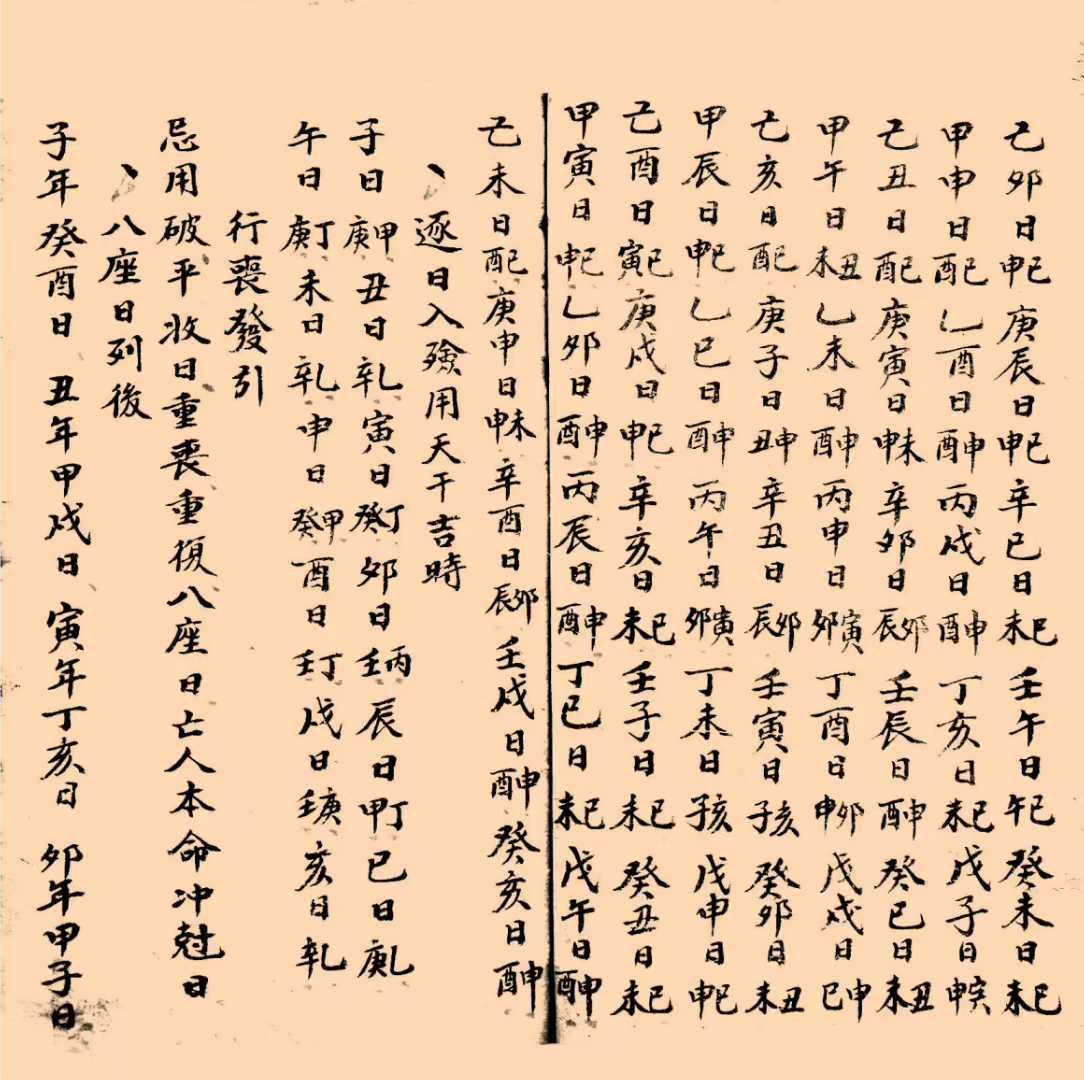 己卯日巳申庚辰日巳申辛巳日巳未壬午日巳午癸未日巳未
甲申日巳酉乙酉日申酉丙戌日申酉丁亥日巳未戊子日寅申
己丑日巳酉庚寅日未申辛卯日卯辰壬辰日申酉癸巳日丑未
甲午日丑未乙未日申酉丙申日寅卯丁酉日卯申戊戌日申巳
己亥日巳酉庚子日申丑辛丑日卯辰壬寅日亥子癸卯日丑未
甲辰日巳申乙巳日申酉丙午日寅卯丁未日亥子戊申日巳申
己酉日巳寅庚戌日巳申辛亥日巳未壬子日巳未癸丑日巳未
甲寅日巳申乙卯日申酉丙辰日申酉丁巳日巳未戊午日申酉
己未日巳酉庚申日未申辛酉日卯辰壬戌日申酉癸亥日申酉
、逐日入殮用天干吉時
子日甲庚丑日乙辛寅日丁癸卯日丙壬辰日丁甲巳日乙庚
午日丁庚未日乙辛申日甲癸酉日丁壬戌日庚壬亥日乙辛
行喪發引
忌用破平收日重喪重復八座日亡人本命冲尅日
、八座日列後
子年癸酉日 丑年甲戌日 寅年丁亥日 卯年甲子日